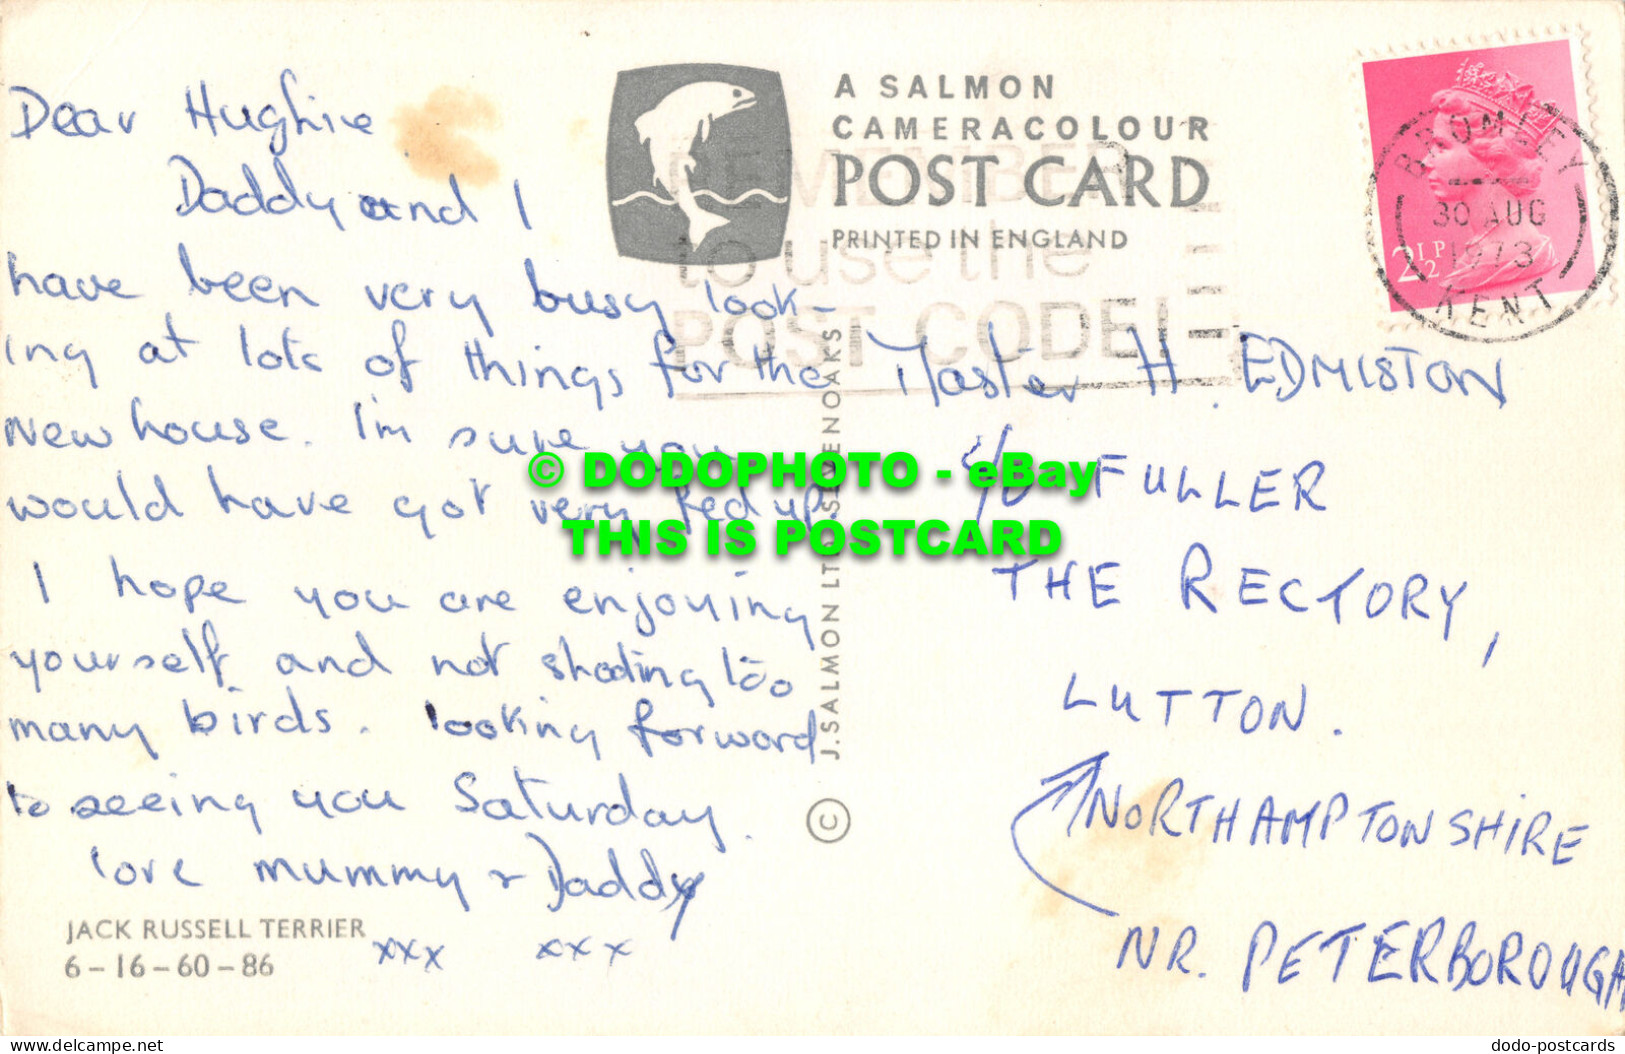 Dear Hughie
Daddy and I
have been very busy look-
ing at lots of things for the
new house. I'm sure you
would have got very fed up.
I hope you are enjoying
yourself and not shooting too
many birds. looking forward
to seeing you Saturday.
love mummy + Daddy
xxx xxx
JACK RUSSELL TERRIER
6-16-60-86
A SALMON
CAMERACOLOUR
POST CARD
PRINTED IN ENGLAND
REMEMBER
to use the
POST CODE!
J. SALMON LTD SEVENOAKS
©
BROMLEY
30 AUG
1973
KENT
2½P
Master H. EDMISTON
c/o FULLER
THE RECTORY,
LUTTON.
NORTHAMPTONSHIRE
NR. PETERBOROUGH
© DODOPHOTO - eBay
THIS IS POSTCARD
www.delcampe.net
dodo-postcards